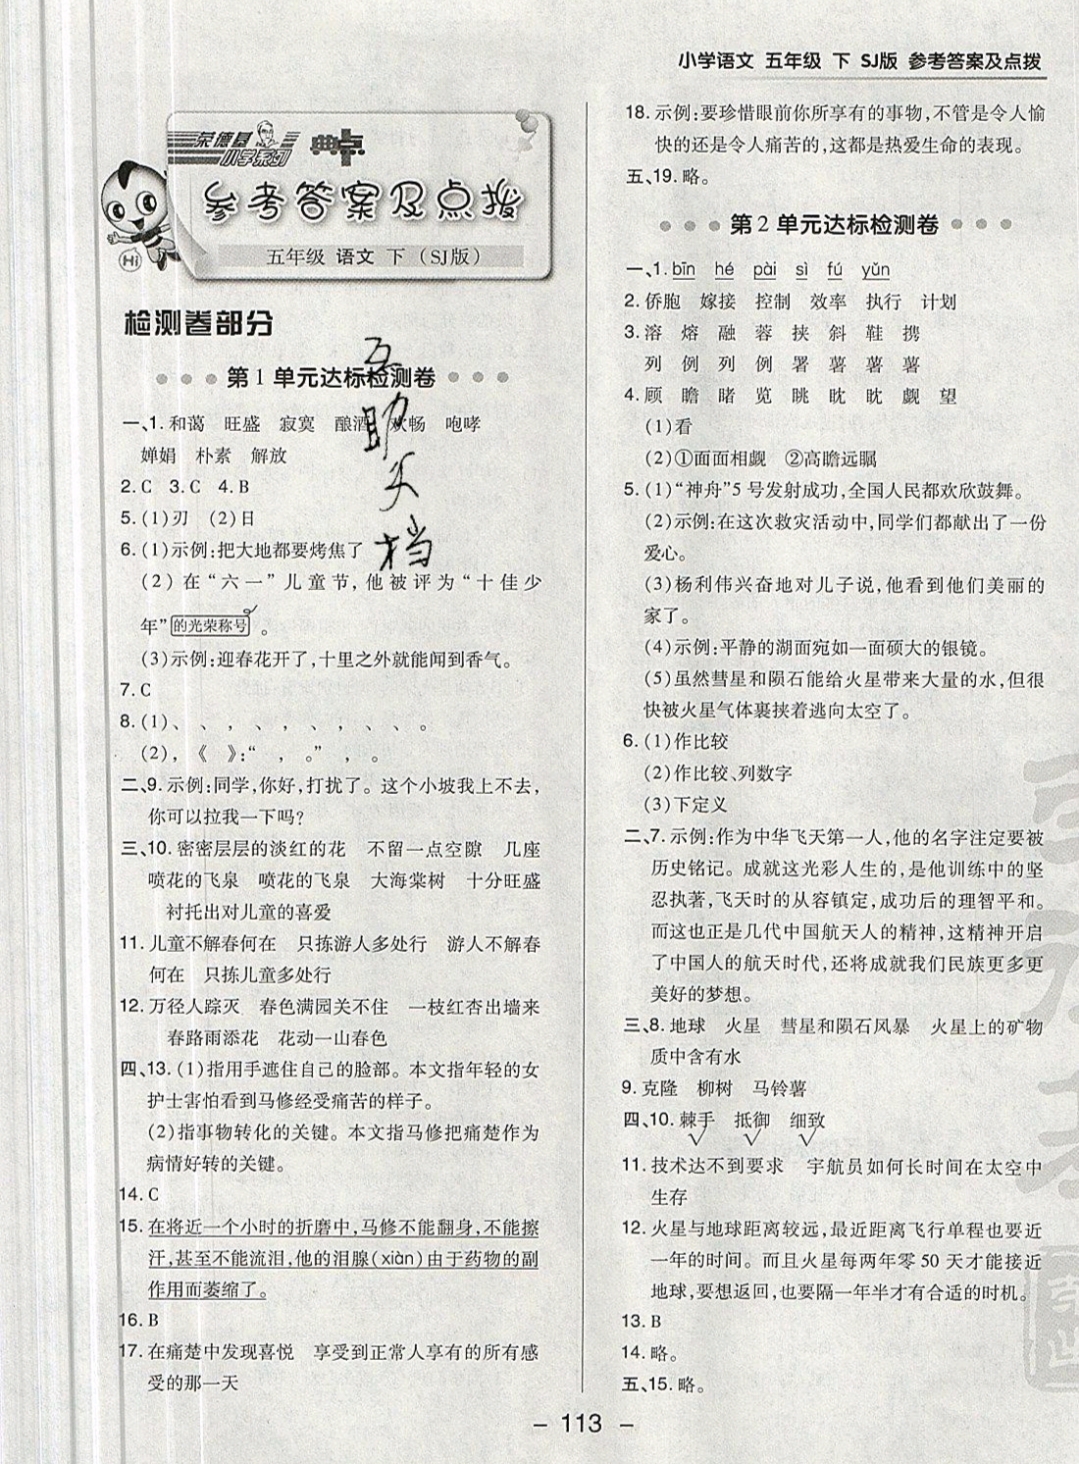 小学语文 五年级 下 SJ版 参考答案及点拨
荣德基
小学系列
典点
参考答案及点拨
Hi
五年级 语文 下（SJ版）
检测卷部分
第1单元达标检测卷
一、1. 和蔼 旺盛 寂寞 酿酒 欢畅 咆哮
婵娟 朴素 解放
2. C 3. C 4. B
5. (1)刃 (2)日
6. (1)示例:把大地都要烤焦了
(2)在“六一”儿童节,他被评为“十佳少
年”的光荣称号。
(3)示例:迎春花开了,十里之外就能闻到香气。
7. C
8. (1)、 、 , , , , 、 、 。
(2), 《 》:“ , 。” , 。
二、9. 示例:同学,你好,打扰了。这个小坡我上不去,
你可以拉我一下吗?
三、10. 密密层层的淡红的花 不留一点空隙 几座
喷花的飞泉 喷花的飞泉 大海棠树 十分旺盛
衬托出对儿童的喜爱
11. 儿童不解春何在 只拣游人多处行 游人不解春
何在 只拣儿童多处行
12. 万径人踪灭 春色满园关不住 一枝红杏出墙来
春路雨添花 花动一山春色
四、13. (1)指用手遮住自己的脸部。本文指年轻的女
护士害怕看到马修经受痛苦的样子。
(2)指事物转化的关键。本文指马修把痛楚作为
病情好转的关键。
14. C
15. 在将近一个小时的折磨中,马修不能翻身,不能擦
汗,甚至不能流泪,他的泪腺(xiàn)由于药物的副
作用而萎缩了。
16. B
17. 在痛楚中发现喜悦 享受到正常人享有的所有感
受的那一天
互
助
文
档
18. 示例:要珍惜眼前你所享有的事物,不管是令人愉
快的还是令人痛苦的,这都是热爱生命的表现。
五、19. 略。
第2单元达标检测卷
一、1. bīn hé pài sì fú yǔn
2. 侨胞 嫁接 控制 效率 执行 计划
3. 溶 熔 融 蓉 挟 斜 鞋 携
列 例 列 例 署 薯 薯 薯
4. 顾 瞻 睹 览 眺 眈 眈 觑 望
(1)看
(2)①面面相觑 ②高瞻远瞩
5. (1)“神舟”5号发射成功,全国人民都欢欣鼓舞。
(2)示例:在这次救灾活动中,同学们都献出了一份
爱心。
(3)杨利伟兴奋地对儿子说,他看到他们美丽的
家了。
(4)示例:平静的湖面宛如一面硕大的银镜。
(5)虽然彗星和陨石能给火星带来大量的水,但很
快被火星气体裹挟着逃向太空了。
6. (1)作比较
(2)作比较、列数字
(3)下定义
二、7. 示例:作为中华飞天第一人,他的名字注定要被
历史铭记。成就这光彩人生的,是他训练中的坚
忍执著,飞天时的从容镇定,成功后的理智平和。
而这也正是几代中国航天人的精神,这精神开启
了中国人的航天时代,还将成就我们民族更多更
美好的梦想。
三、8. 地球 火星 彗星和陨石风暴 火星上的矿物
质中含有水
9. 克隆 柳树 马铃薯
四、10. 棘手 抵御 细致
11. 技术达不到要求 宇航员如何长时间在太空中
生存
12. 火星与地球距离较远,最近距离飞行单程也要近
一年的时间。而且火星每两年零50天才能接近
地球,要想返回,也要隔一年半才有合适的时机。
13. B
14. 略。
五、15. 略。
- 113 -